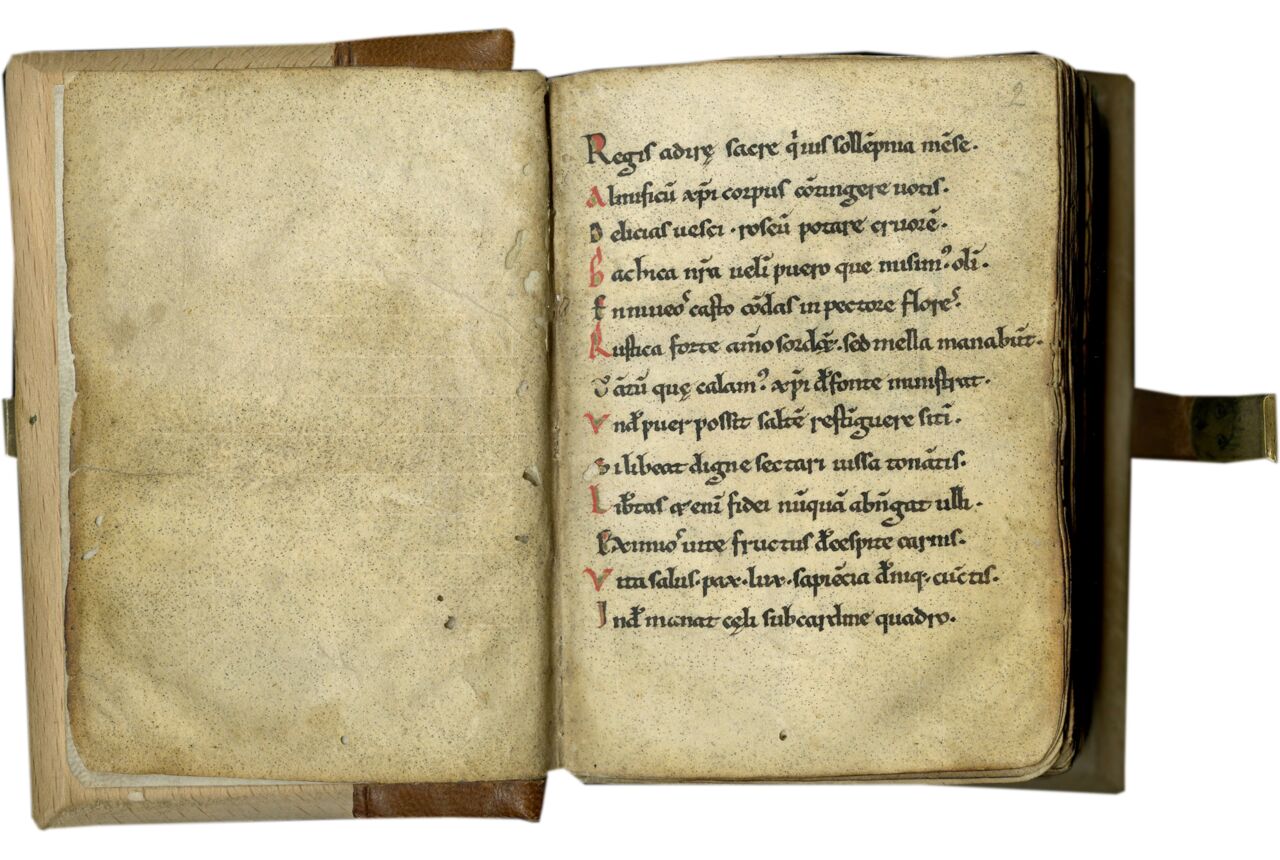 2
Regis adirę sacre q̇uis sollēpnia mēse.
Almificū xp̄i corpus cōtingere uotis.
Delicias uesci . roseū potare cruorē.
Bachica nr̄a uelī puero que misimꝰ. olī.
En niueoˢ casto cōdas in pectore floreˢ.
Rustica forte am̄o sordēt. sed mella manabūt.
Tātū quę calamꝰ xp̄i đ fonte ministrat.
Vnđ puer possit saltē restīguere sitī.
Si libeat digne sectari iussa tonātis.
Lib̄tas & enī fidei nūquā abn̄gat ulli.
Eximioˢ uite fructus đ cespite carnis.
Vita salus. pax. lux. sapiēcia đniq. cūctis.
Inđ manat cęli sub cardine quadro.